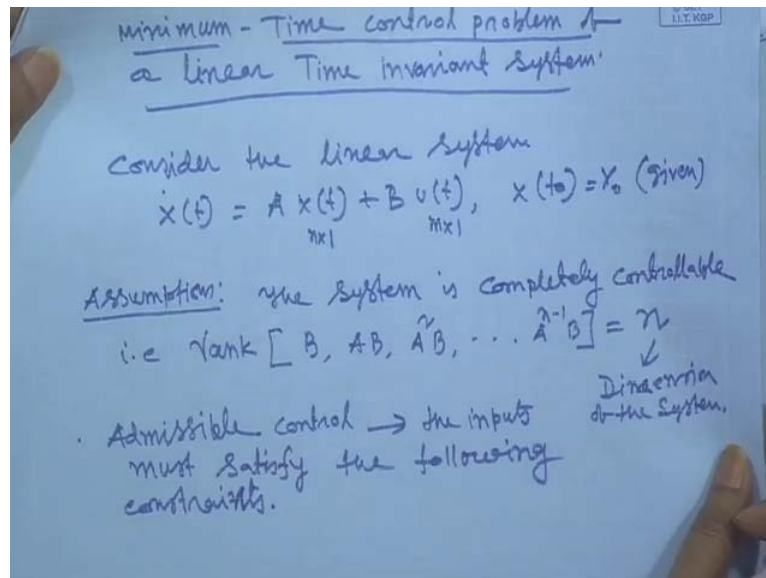 I.I.T. KGP
Minimum - Time control problem of
a linear Time invariant system.
Consider the linear system
ẋ(t) = A x(t) + B u(t), x(t₀) = X₀ (given)
n×1 m×1
Assumption: The system is completely controllable
i.e rank [ B, AB, A²B, .... Aⁿ⁻¹B] = n
↙
Dimension
of the System.
. Admissible control → the inputs
must satisfy the following
constraints.